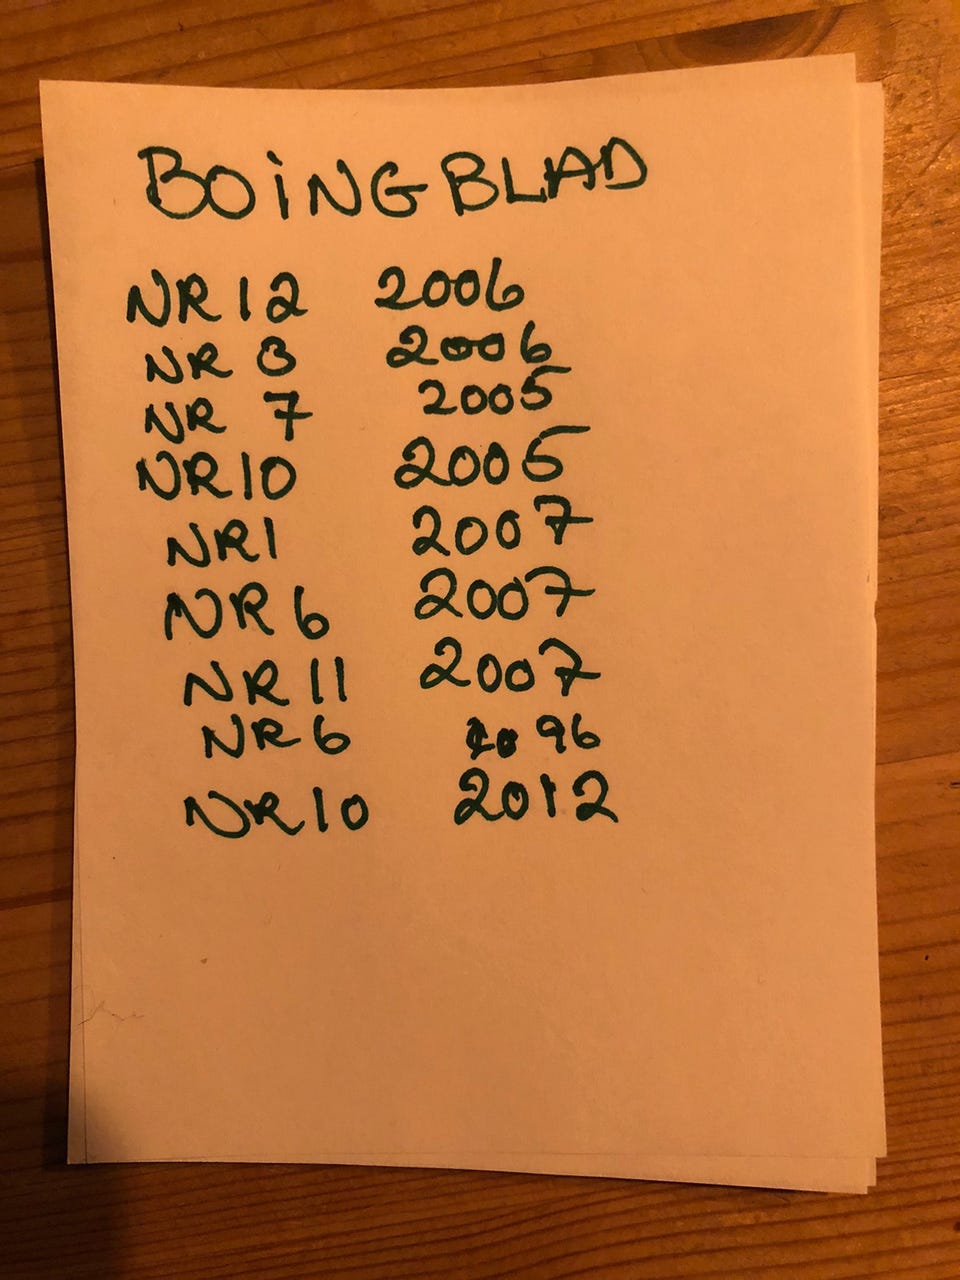 BOiNG BLAD
NR 12 2006
NR 8 2006
NR 7 2005
NR 10 2005
NR 1 2007
NR 6 2007
NR 11 2007
NR 6 96
NR 10 2012